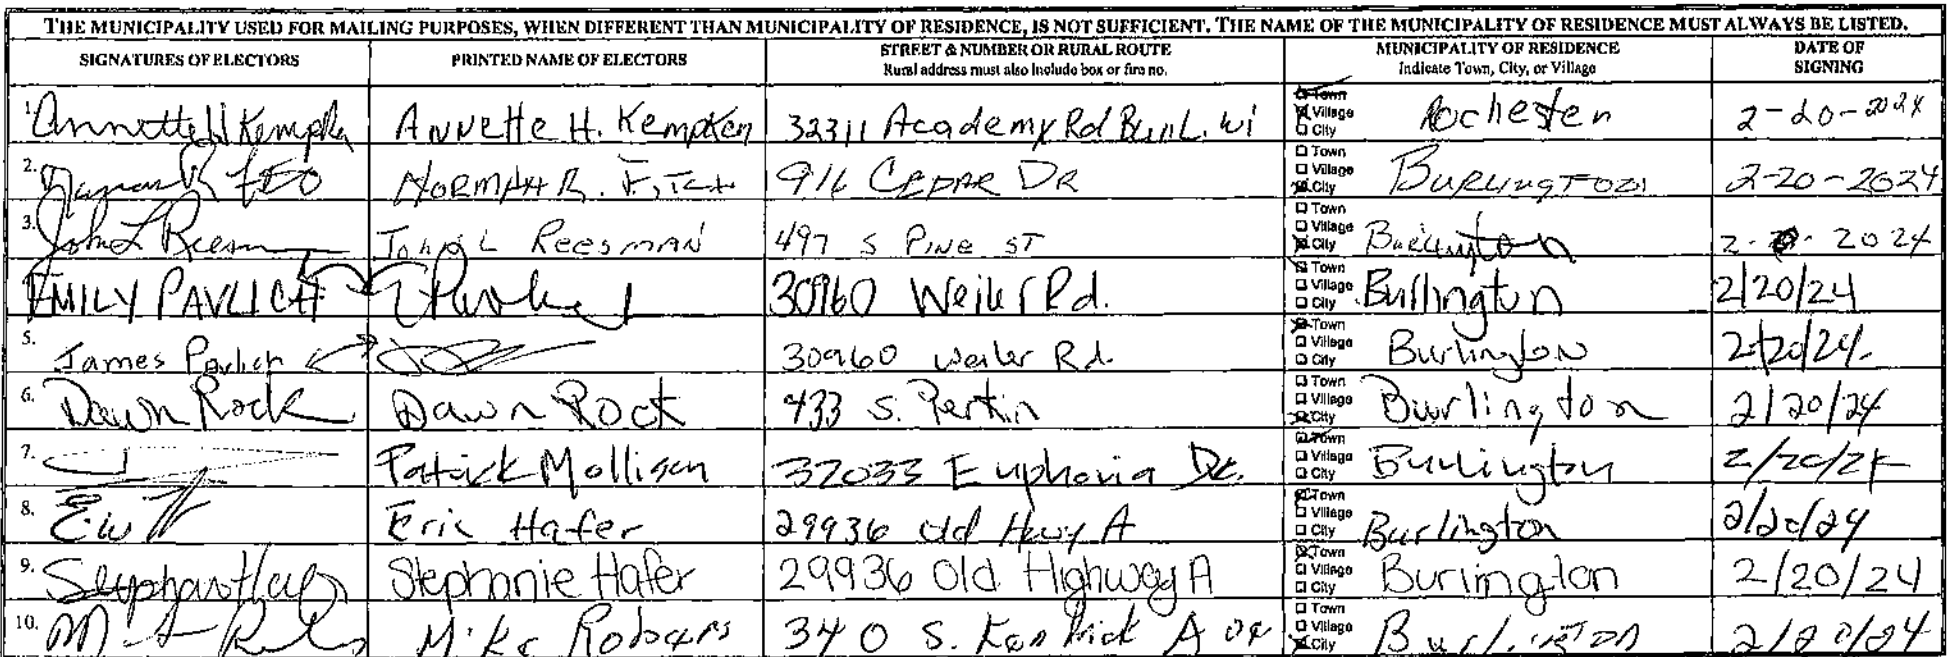 THE MUNICIPALITY USED FOR MAILING PURPOSES, WHEN DIFFERENT THAN MUNICIPALITY OF RESIDENCE, IS NOT SUFFICIENT. THE NAME OF THE MUNICIPALITY OF RESIDENCE MUST ALWAYS BE LISTED.
SIGNATURES OF ELECTORS PRINTED NAME OF ELECTORS STREET & NUMBER OR RURAL ROUTE Rural address must also include box or fire no. MUNICIPALITY OF RESIDENCE Indicate Town, City, or Village DATE OF SIGNING
1. Annette H Kempken Annette H. Kempken 32311 Academy Rd Burl. Wi Town Village City Rochester 2-20-2024
2. NORMAN R. FITCH 916 CEDAR DR Town Village City BURLINGTON 2-20-2024
3. John L Reesman John L REESMAN 497 S PINE ST Town Village City Burlington 2- - 2024
EMILY PAVLICH 30960 Weiler Rd. Town Village City Burlington 2/20/24
5. James Pavlich 30960 Weiler Rd. Town Village City Burlington 2/20/24
6. Dawn Rock Dawn Rock 433 S. Perkin Town Village City Burlington 2/20/24
7. Patrick Mollison 32033 Euphoria Dr. Town Village City Burlington 2/20/24
8. Eric Hafer 29936 Old Hwy A Town Village City Burlington 2/20/24
9. Stephanie Hafer 29936 Old Highway A Town Village City Burlington 2/20/24
10. Mike Robers 340 S. Kendrick Ave Town Village City Burlington 2/20/24